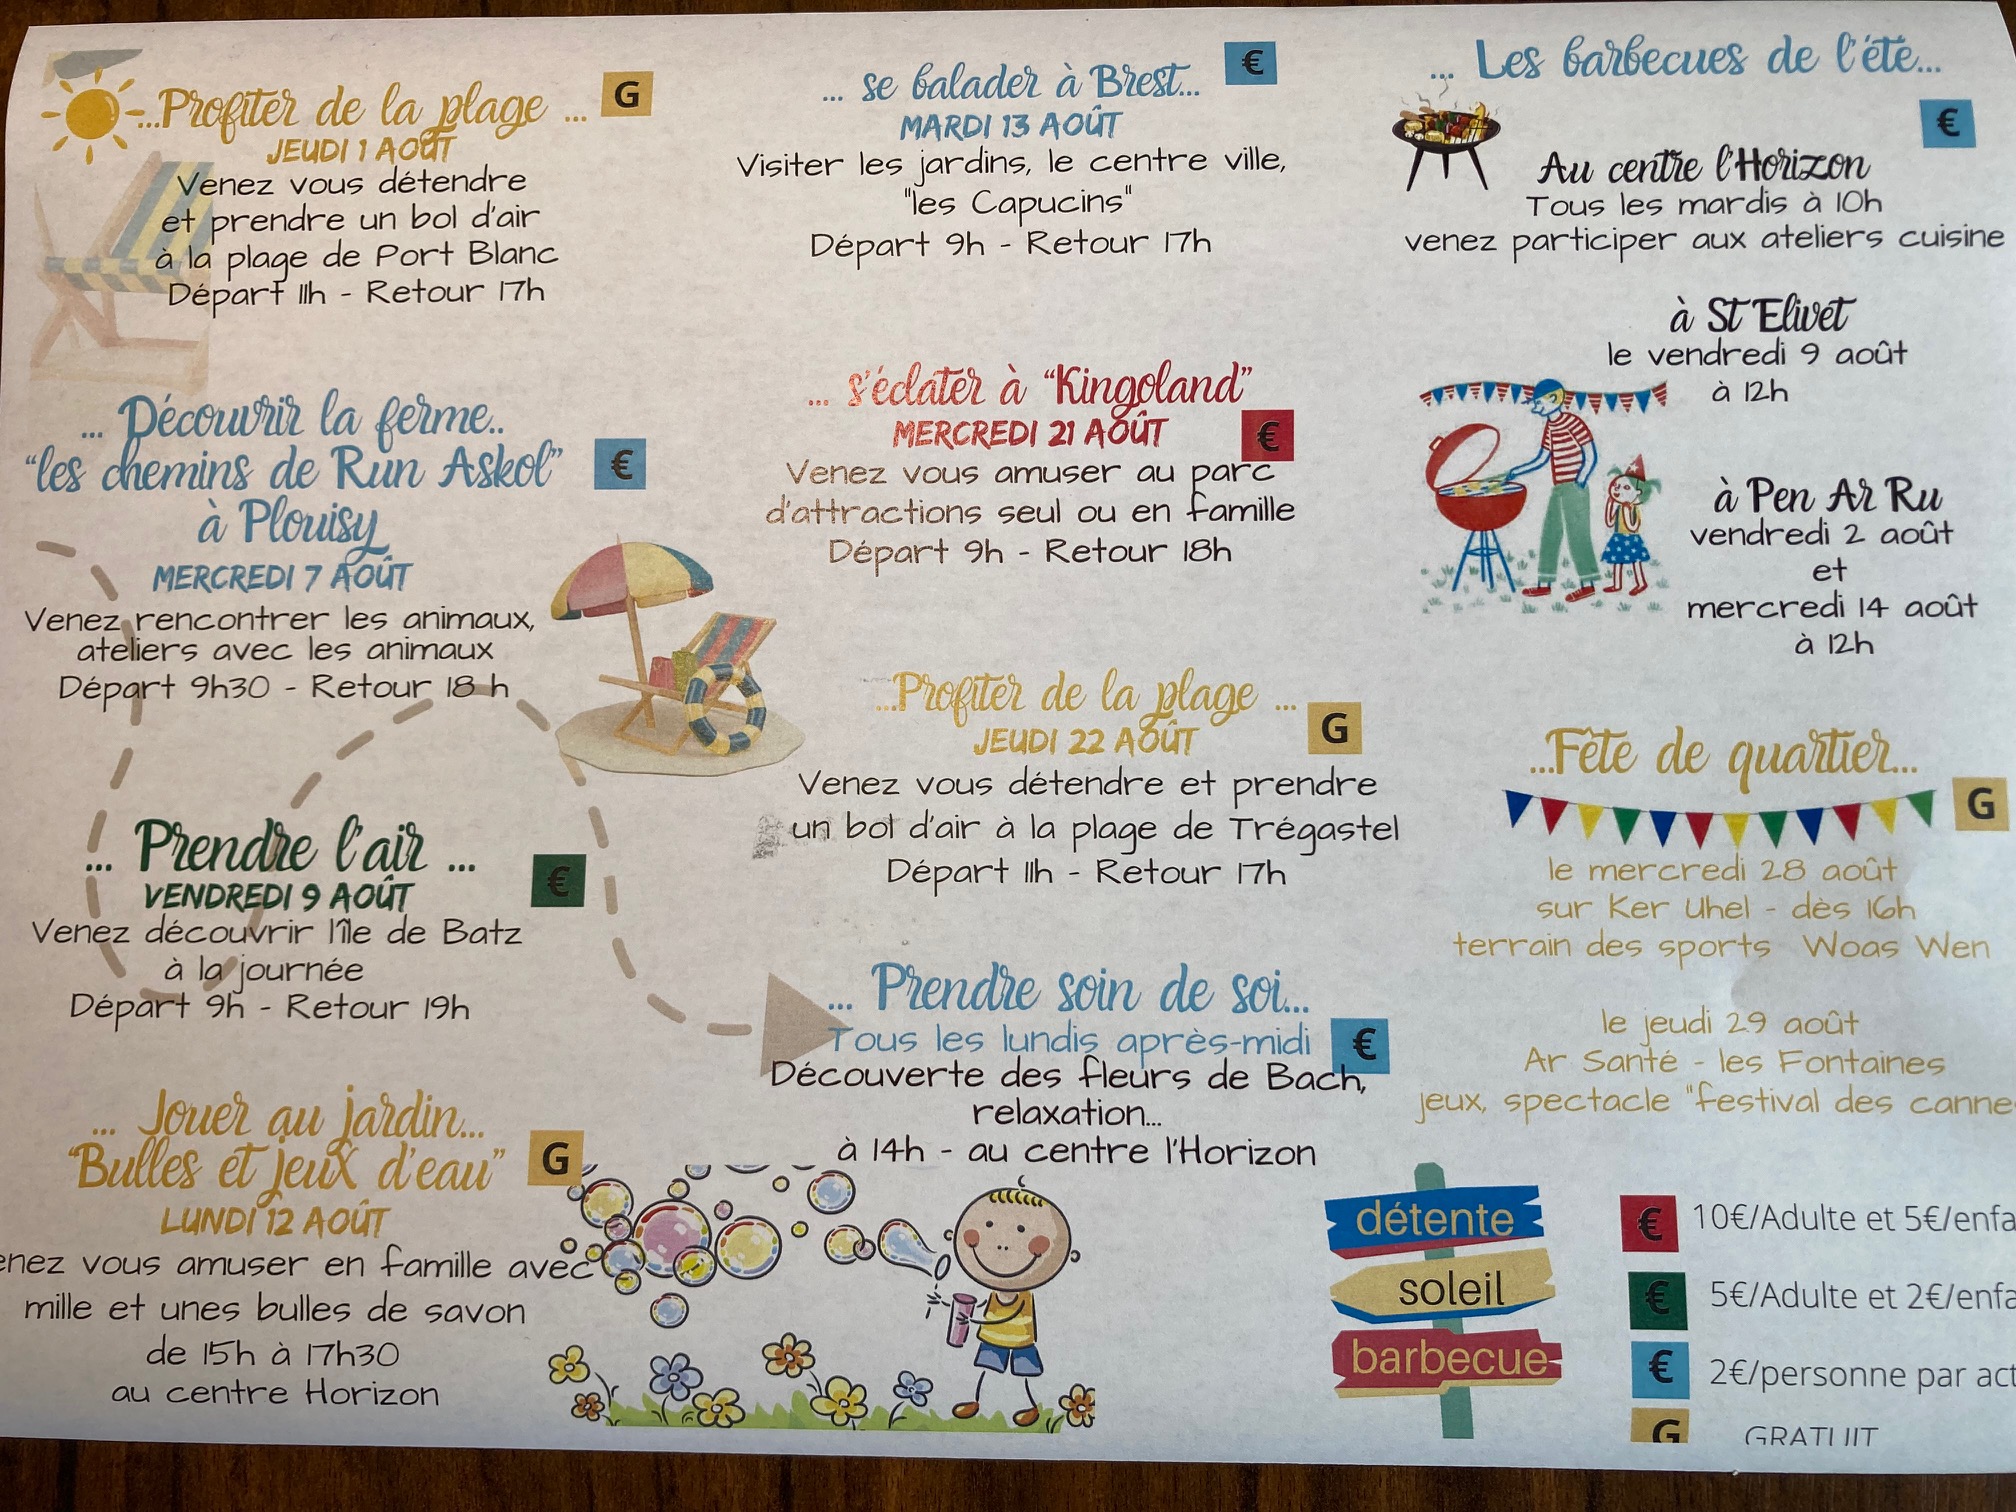 ...Profiter de la plage ...
G
JEUDI 1 AOÛT
Venez vous détendre
et prendre un bol d'air
à la plage de Port Blanc
Départ 11h - Retour 17h
... Découvrir la ferme..
"les chemins de Run Askol"
à Plouisy
€
MERCREDI 7 AOÛT
Venez rencontrer les animaux,
ateliers avec les animaux
Départ 9h30 - Retour 18 h
... Prendre l'air ...
€
VENDREDI 9 AOÛT
Venez découvrir l'île de Batz
à la journée
Départ 9h - Retour 19h
... Jouer au jardin...
"Bulles et jeux d'eau"
G
LUNDI 12 AOÛT
enez vous amuser en famille avec
mille et unes bulles de savon
de 15h à 17h30
au centre Horizon
... se balader à Brest...
€
MARDI 13 AOÛT
Visiter les jardins, le centre ville,
"les Capucins"
Départ 9h - Retour 17h
... s'éclater à "Kingoland"
MERCREDI 21 AOÛT
€
Venez vous amuser au parc
d'attractions seul ou en famille
Départ 9h - Retour 18h
...Profiter de la plage ...
G
JEUDI 22 AOÛT
Venez vous détendre et prendre
un bol d'air à la plage de Trégastel
Départ 11h - Retour 17h
... Prendre soin de soi...
Tous les lundis après-midi
€
Découverte des fleurs de Bach,
relaxation...
à 14h - au centre l'Horizon
... Les barbecues de l'été...
€
Au centre l'Horizon
Tous les mardis à 10h
venez participer aux ateliers cuisine
à St Elivet
le vendredi 9 août
à 12h
à Pen Ar Ru
vendredi 2 août
et
mercredi 14 août
à 12h
...Fête de quartier...
G
le mercredi 28 août
sur Ker Uhel - dès 16h
terrain des sports Woas Wen
le jeudi 29 août
Ar Santé - les Fontaines
jeux, spectacle "festival des canne
détente
soleil
barbecue
€ 10€/Adulte et 5€/enfa
€ 5€/Adulte et 2€/enfa
€ 2€/personne par act
G GRATUIT